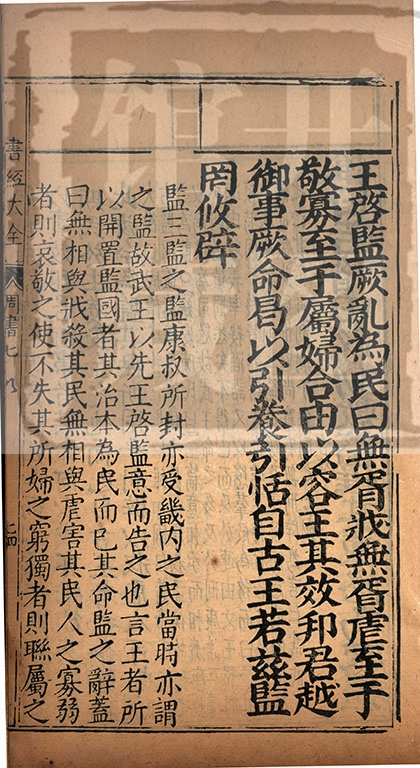 王啓監厥亂為民曰無胥戕無胥虐至于
敬寡至于屬婦合由以容王其效邦君越
御事厥命曷以引養引恬自古王若兹監
罔攸辟
監三監之監康叔所封亦受畿内之民當時亦謂
之監故武王以先王啓監意而告之也言王者所
以開置監國者其治本為民而已其命監之辭蓋
曰無相與戕殺其民無相與虐害其民人之寡弱
者則哀敬之使不失其所婦之窮獨者則聯屬之
書經大全 八 周書七